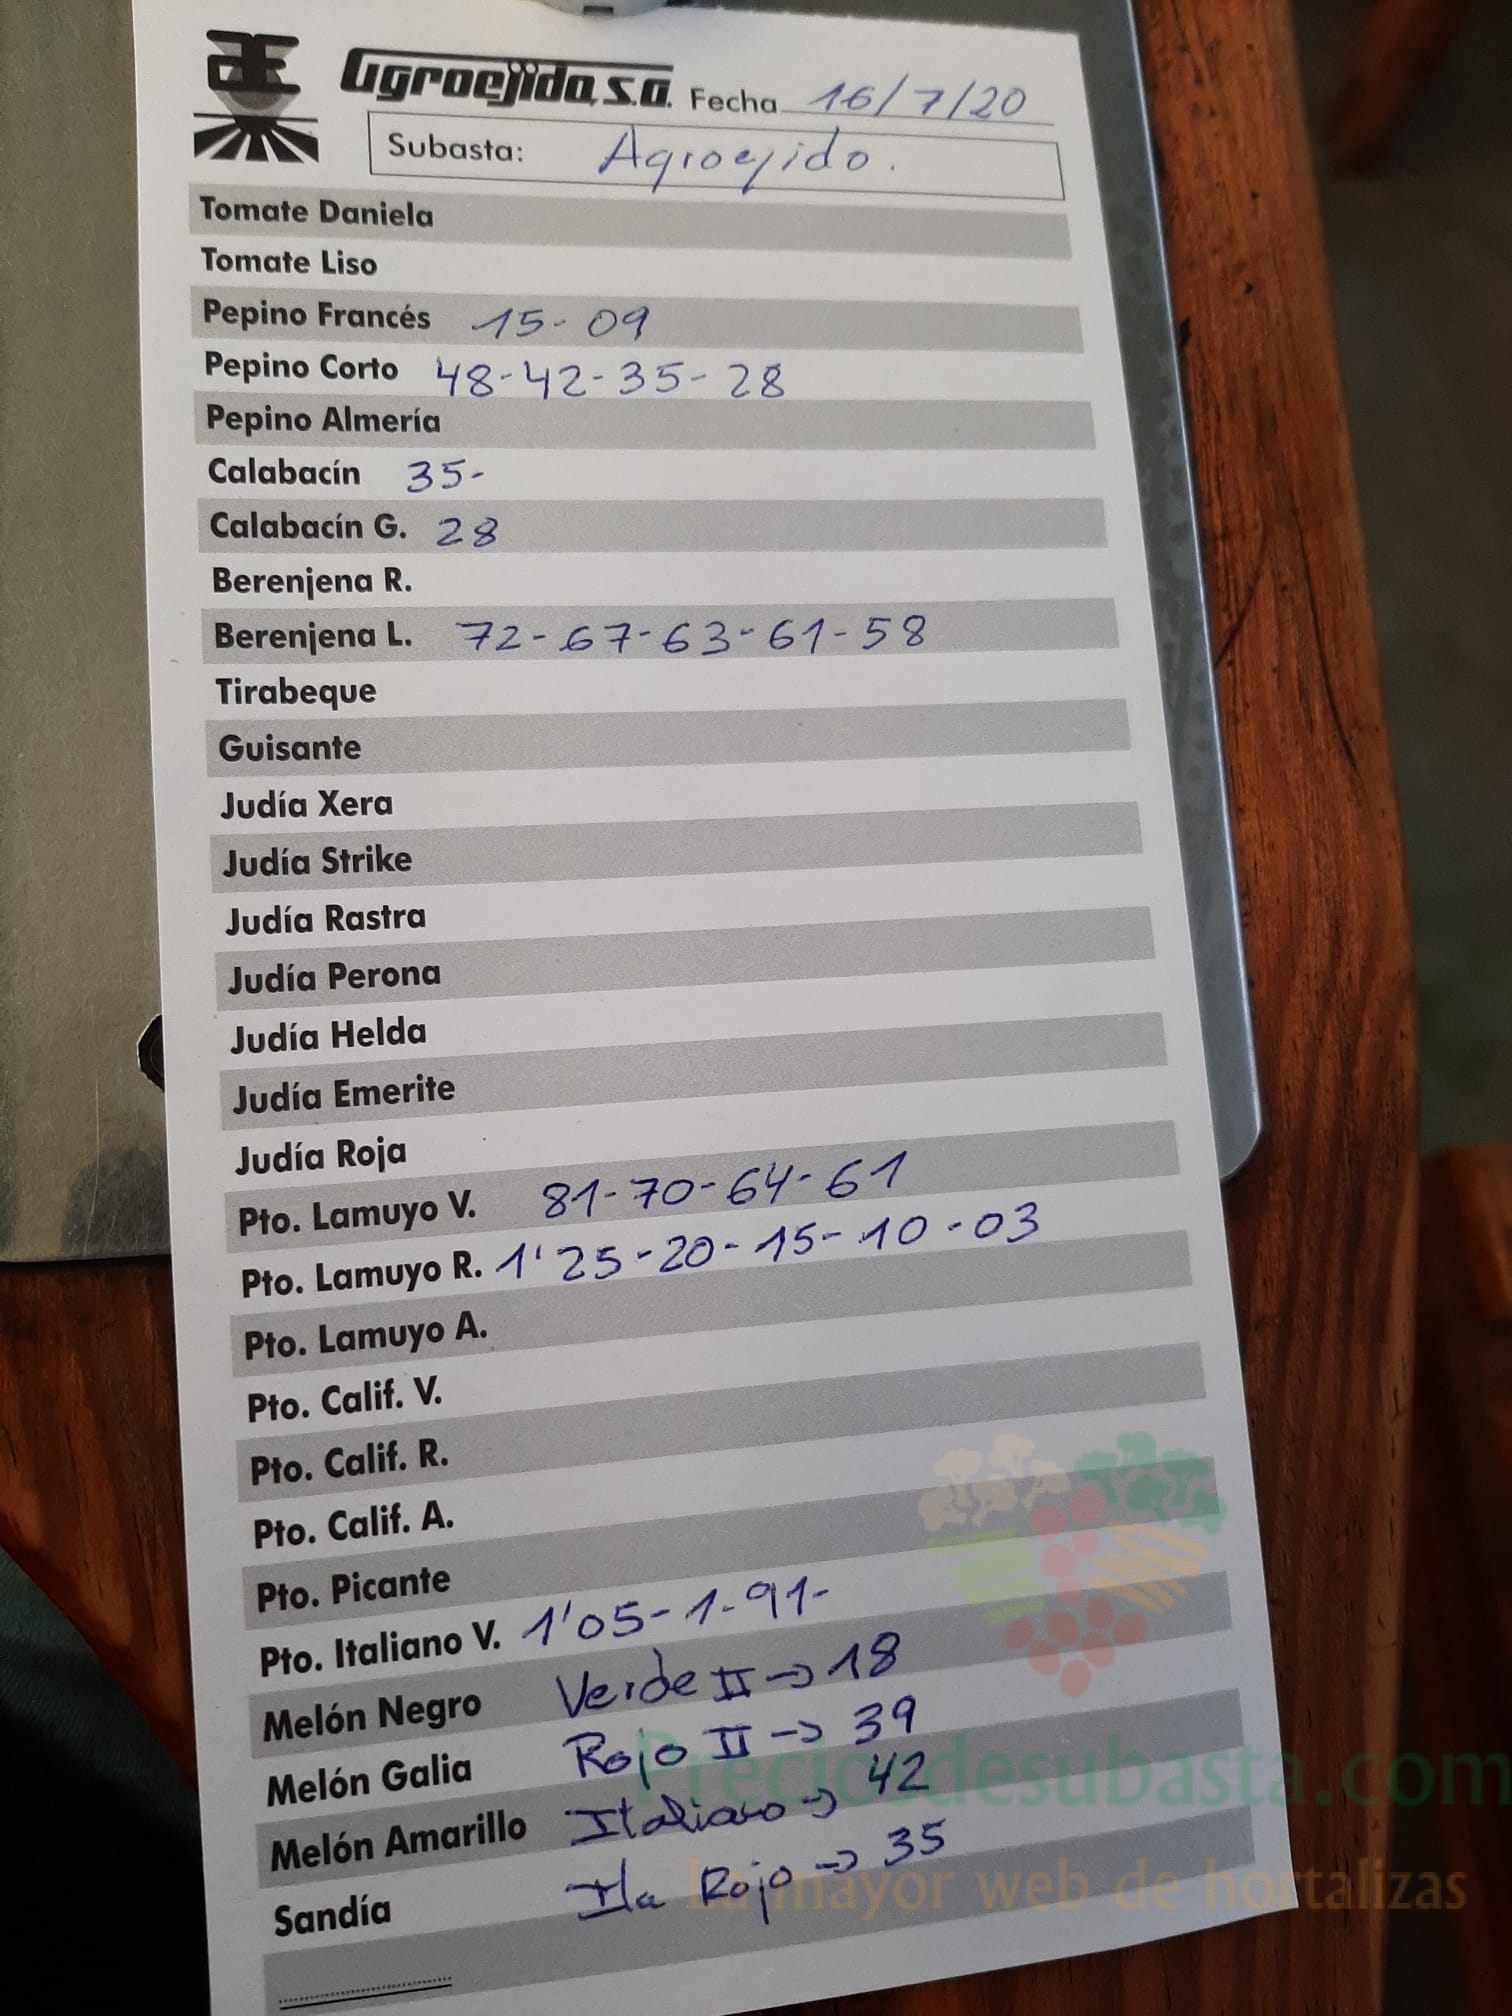 Agroejido, S.A. Fecha 16/7/20
Subasta: Agroejido.
Tomate Daniela
Tomate Liso
Pepino Francés 15-09
Pepino Corto 48-42-35-28
Pepino Almería
Calabacín 35-
Calabacín G. 28
Berenjena R.
Berenjena L. 72-67-63-61-58
Tirabeque
Guisante
Judía Xera
Judía Strike
Judía Rastra
Judía Perona
Judía Helda
Judía Emerite
Judía Roja
Pto. Lamuyo V. 81-70-64-61
Pto. Lamuyo R. 1'25-20-15-10-03
Pto. Lamuyo A.
Pto. Calif. V.
Pto. Calif. R.
Pto. Calif. A.
Pto. Picante
Pto. Italiano V. 1'05-1-91-
Melón Negro Verde II → 18
Melón Galia Rojo II → 39
Melón Amarillo Italiano → 42
Sandía Ita Rojo → 35
Preciosdesubasta.com
La mayor web de hortalizas